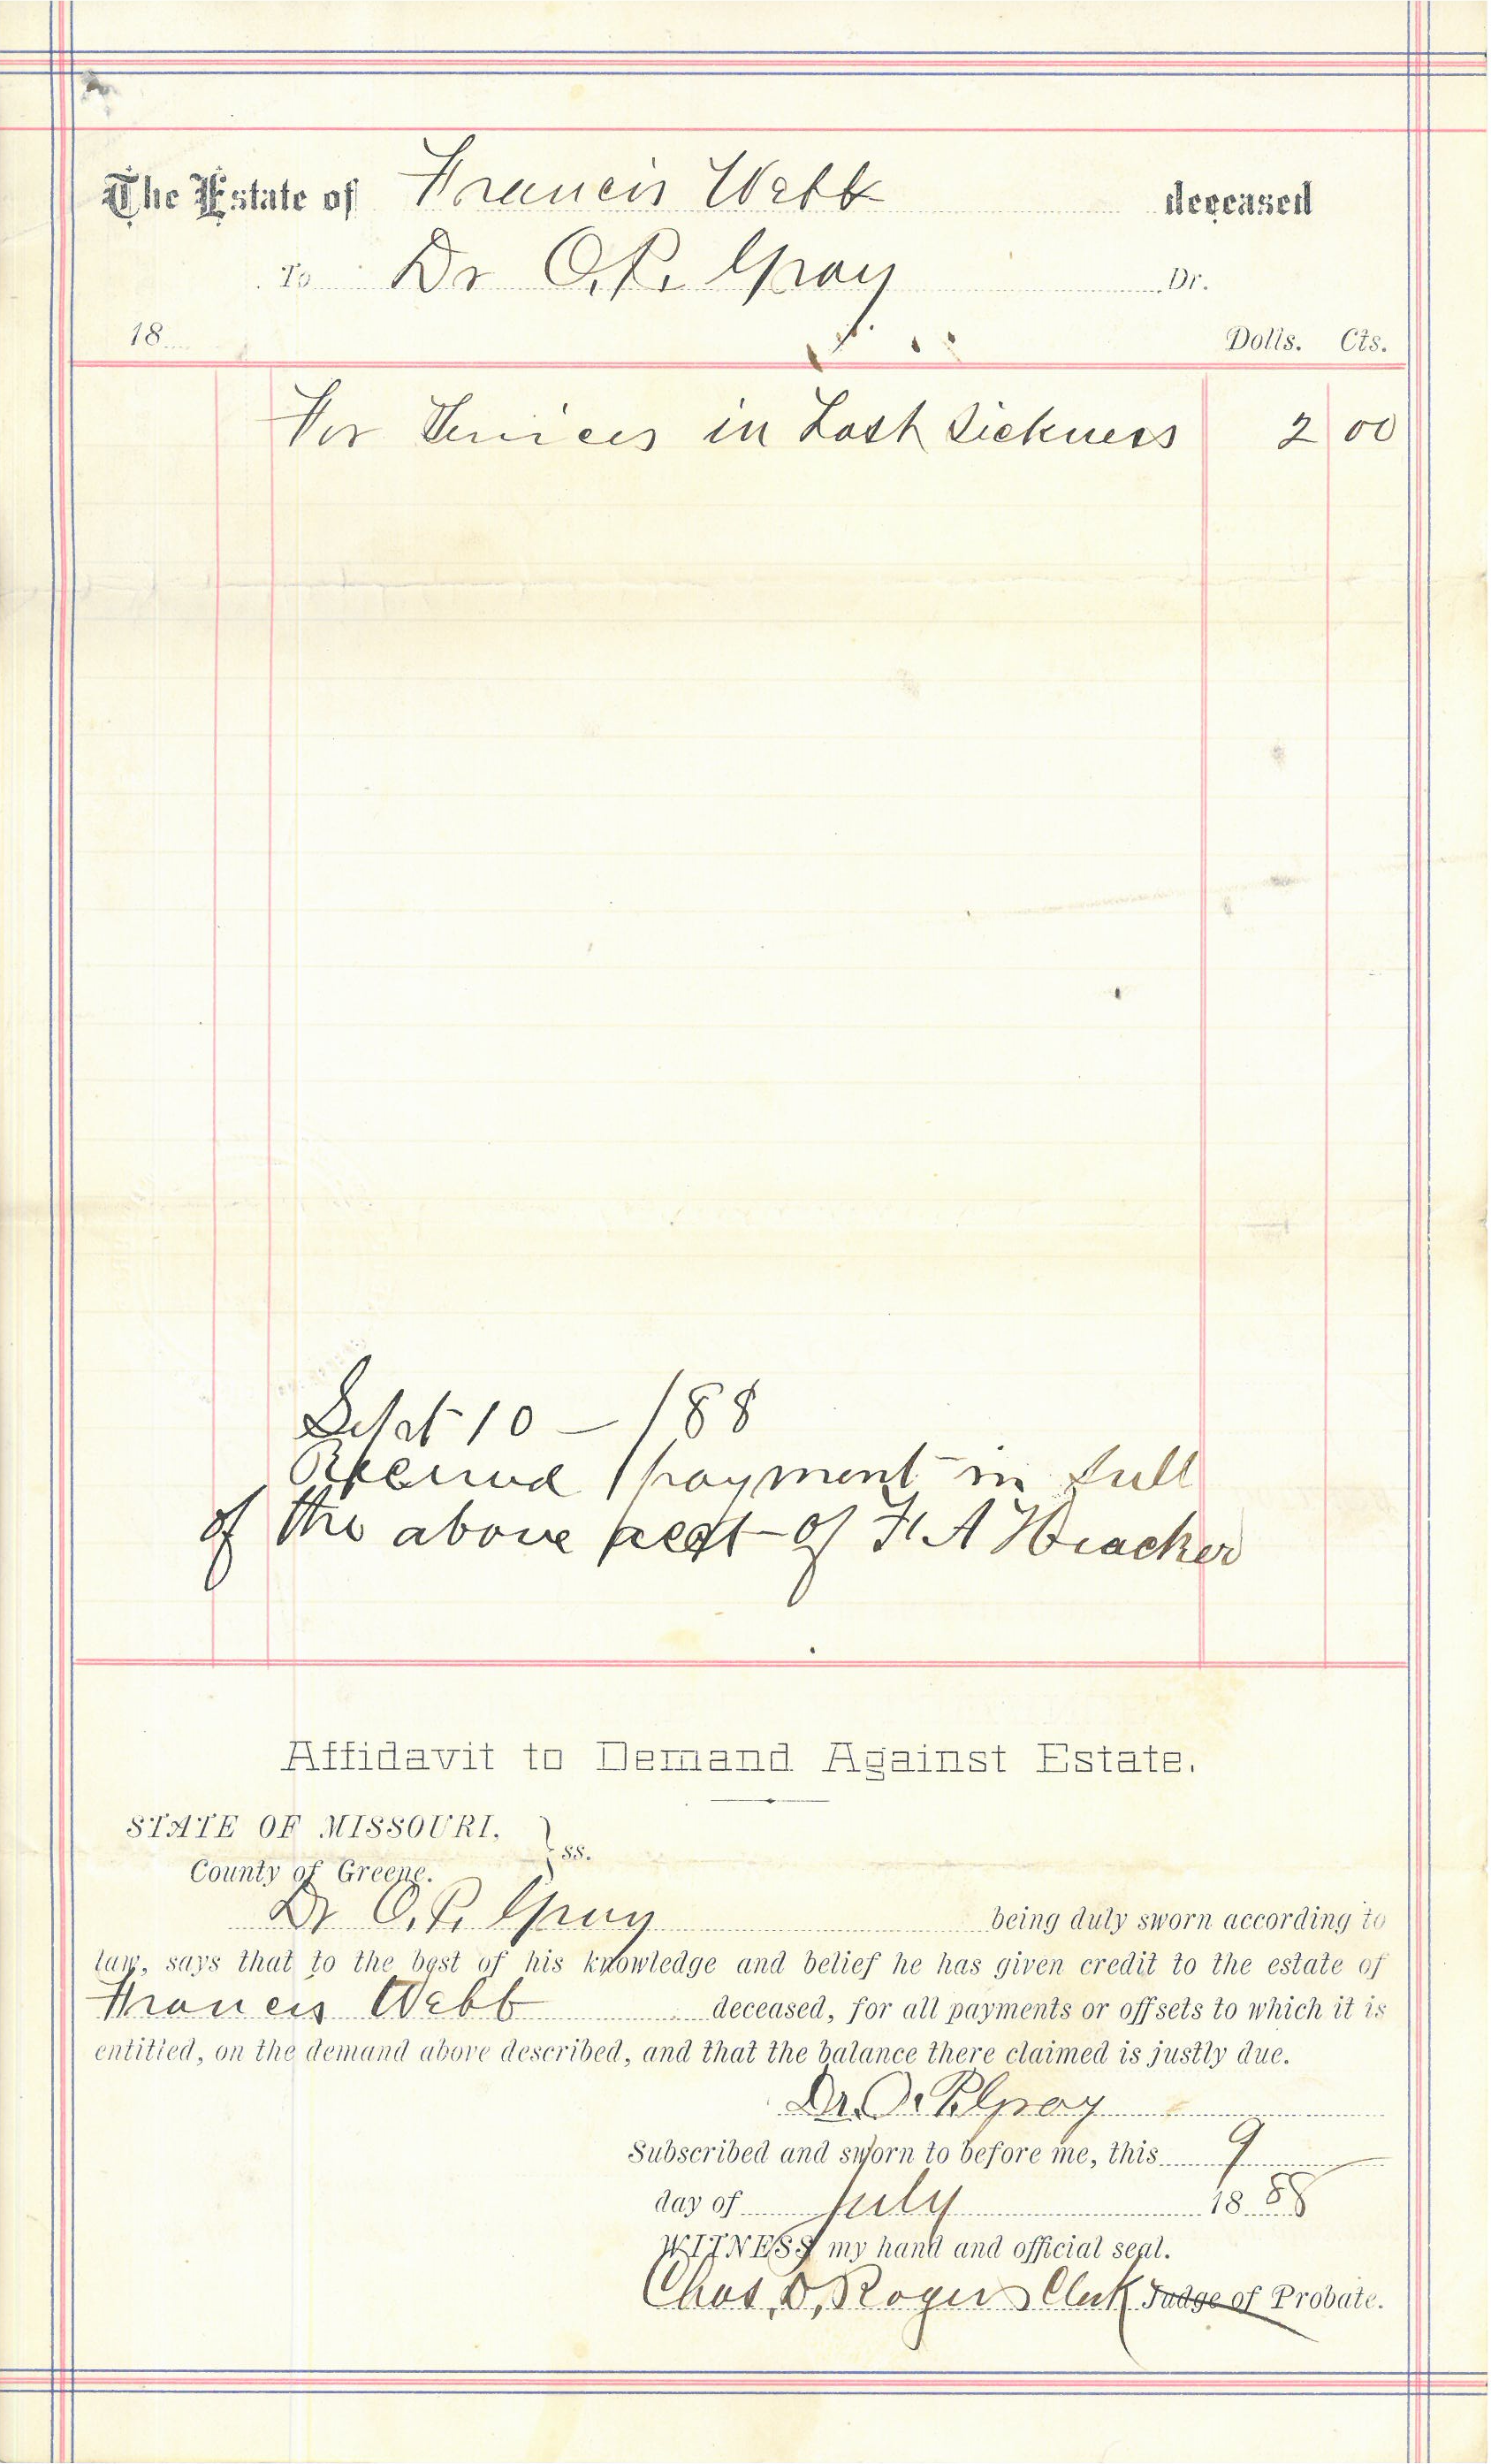 The Estate of Francis Webb deceased
To Dr O. P. Gray Dr.
18 Dolls. Cts.
For Services in Last Sickness 2 00
Sept 10 - 188
Received payment in full
of the above acct of F A Heacker
Affidavit to Demand Against Estate.
STATE OF MISSOURI,
ss.
County of Greene.
Dr O. P. Gray being duly sworn according to
law, says that to the best of his knowledge and belief he has given credit to the estate of
Francis Webb deceased, for all payments or offsets to which it is
entitled, on the demand above described, and that the balance there claimed is justly due.
Dr. O. P. Gray
Subscribed and sworn to before me, this 9
day of July 1888
WITNESS my hand and official seal.
Chas. D. Rogers Clerk Judge of Probate.